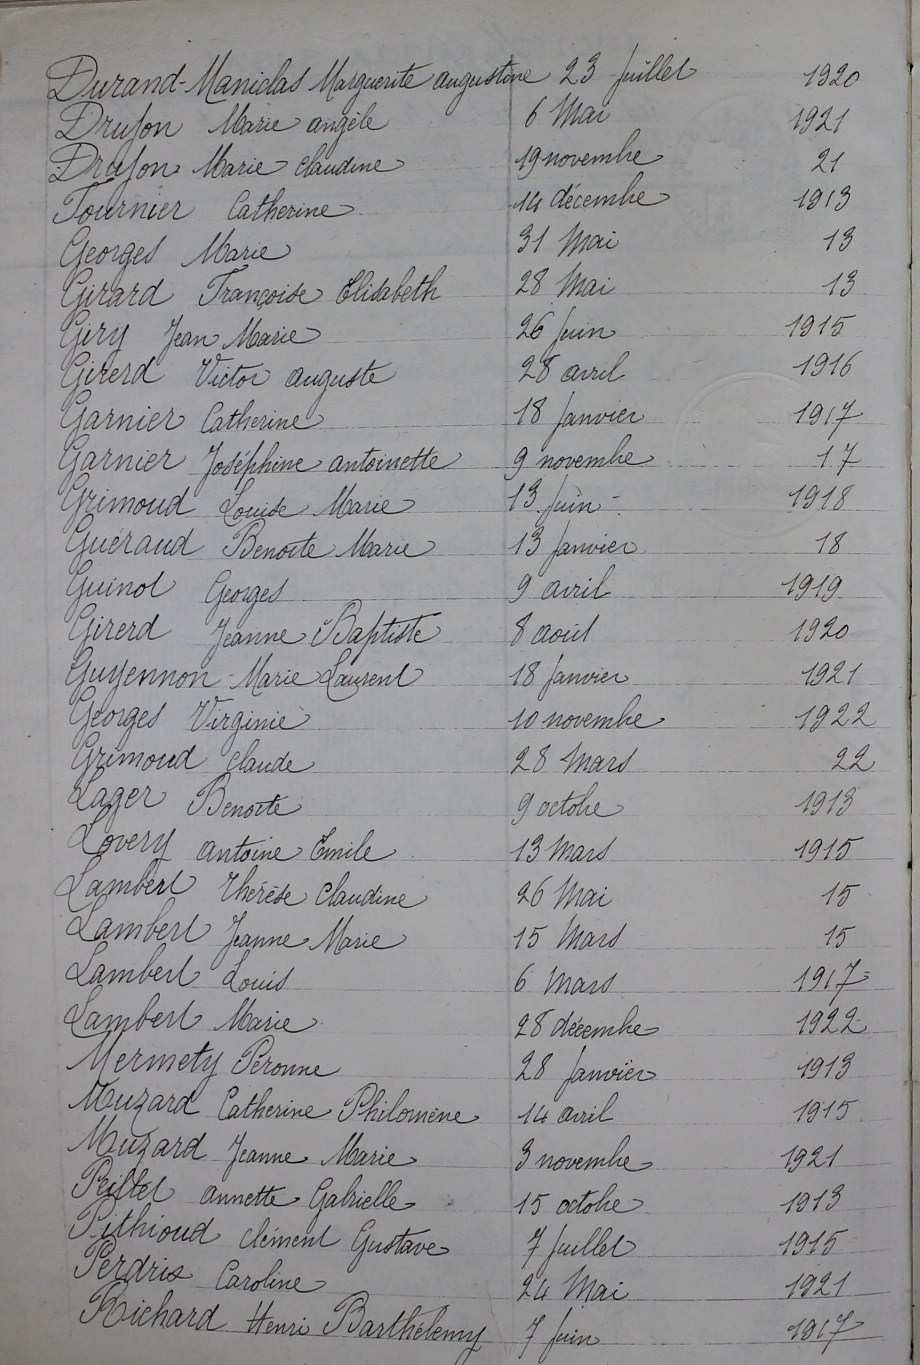 Durand-Maniclas Marguerite augustine 23 Juillet 1920
Drujon Marie angèle 6 Mai 1921
Drujon Marie Claudine 19 novembre 21
Fournier Catherine 14 décembre 1913
Georges Marie 31 Mai 13
Girard Françoise Elisabeth 28 Mai 13
Giry Jean Marie 26 Juin 1915
Girerd Victor auguste 28 avril 1916
Garnier Catherine 18 Janvier 1917
Garnier Joséphine antoinette 9 novembre 17
Grimoud Louise Marie 13 Juin - 1918
Gueraud Benoite Marie 13 Janvier 18
Guinot Georges 9 avril 1919
Girerd Jeanne Baptiste 8 août 1920
Guyennon Marie Laurent 18 Janvier 1921
Georges Virginie 10 novembre 1922
Grimoud Claude 28 Mars 22
Lager Benoite 9 octobre 1913
Lovery antoine Emile 13 Mars 1915
Lambert Thérèse Claudine 26 Mai 15
Lambert Jeanne Marie 15 Mars 15
Lambert Louis 6 Mars 1917
Lambert Marie 28 décembre 1922
Mermety Péronne 28 Janvier 1913
Muzard Catherine Philomène 14 avril 1915
Muzard Jeanne Marie 3 novembre 1921
annette Gabrielle 15 octobre 1913
Pithioud Clément Gustave 7 Juillet 1915
Perdrix Caroline 24 Mai 1921
Richard Henri Barthélemy 7 Juin 1917